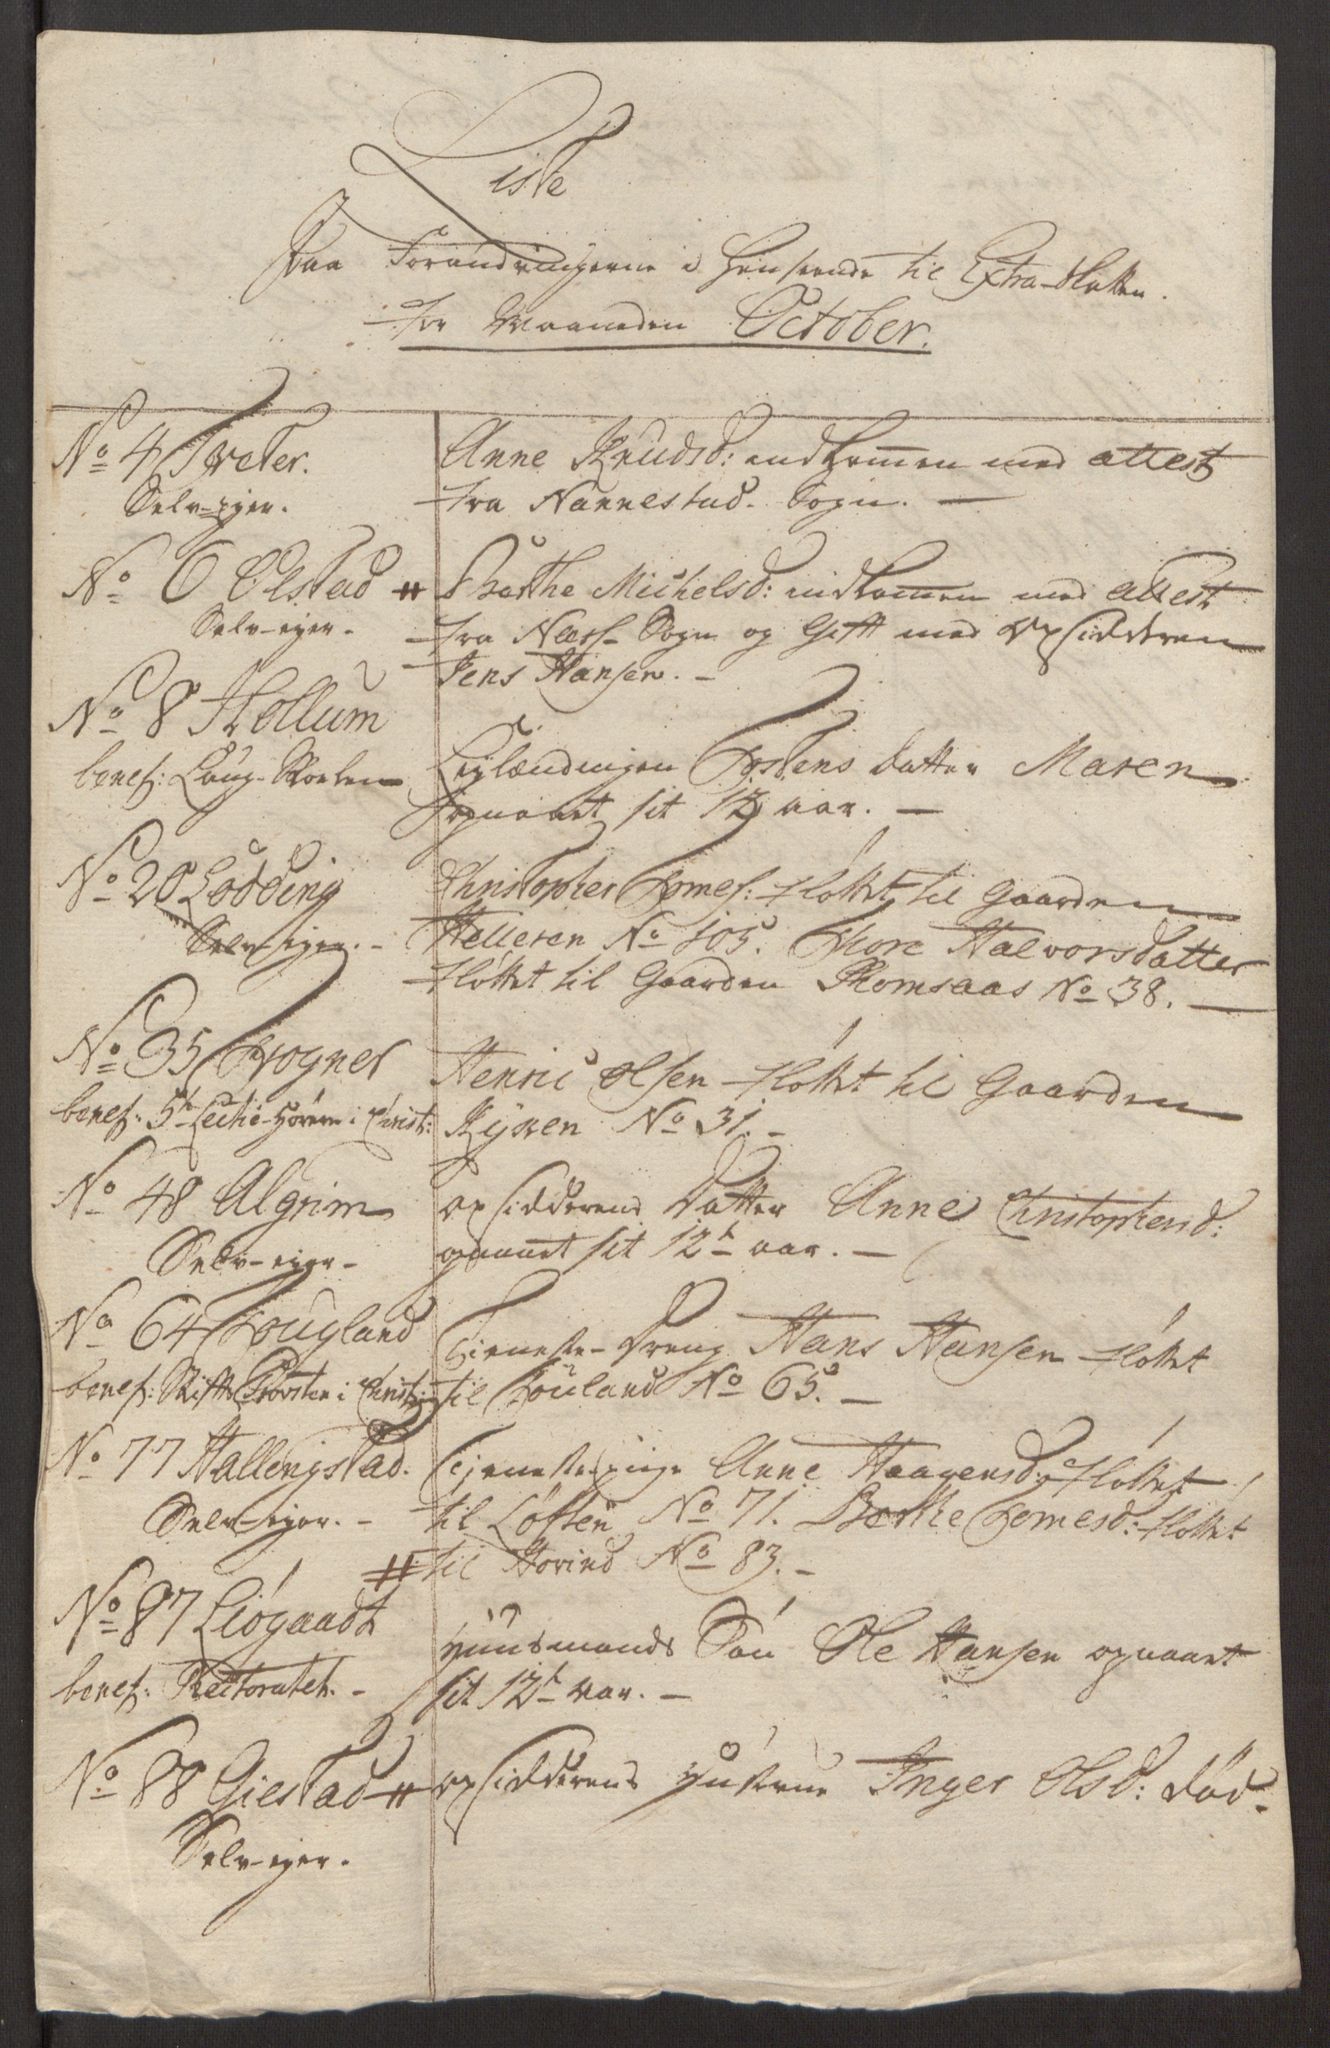 Liste
Paa Forandringerne i Henseende til Extra-Skatten.
for Maaneden October.
No 4 Tveter.
Selv-ejer.
Anne Knudsd: indkommen med attest
fra Nannestad Sogn. —
No 6 Olstad #
Selv-ejer.
Berthe Michelsd: indkommen med attest
fra Næss- Sogn og Gift med Opsidderen
Jens Hansen. —
No 8 Hollum
benef: Laug-Skoelen
Leylændingen Tostens datter Maren
opnaaet sit 12 aar. —
No 20 Lodding
Selv-ejer. -
Christopher Tomes: fløttet til Gaarden
Helleren No 105. Thore Halvorsdatter
fløttet til Gaarden Skomsaas No 38. —
No 35 Frogner
benef: 5te Lectie-Hørere i Christ:
Henric Olsen fløttet til Gaarden
No 31. -
No 48 Algrim
Selv-ejer -
opsidderens Datter Anne Christophersd:
opnaaet sit 12te aar. —
No 64 Hougland
benef: Stifts Provsten i Christ:
Tieneste-Dreng Hans Hansen fløttet
til Houland No 65. —
No 77 Hallengstad.
Selv-ejer. -
Tieneste pige Anne Haagensd: fløttet
til Løkken No 71. Berthe Tomesd: fløttet
# til Hovind No 83. -
No 87 Liøgaadt
benef: Rectoratet. -
Huusmands Søn Ole Hansen opnaaet
sit 12te aar. —
No 88 Giestad #
Selv-ejer.
opsidderens Hustrue Inger Olsd: død.